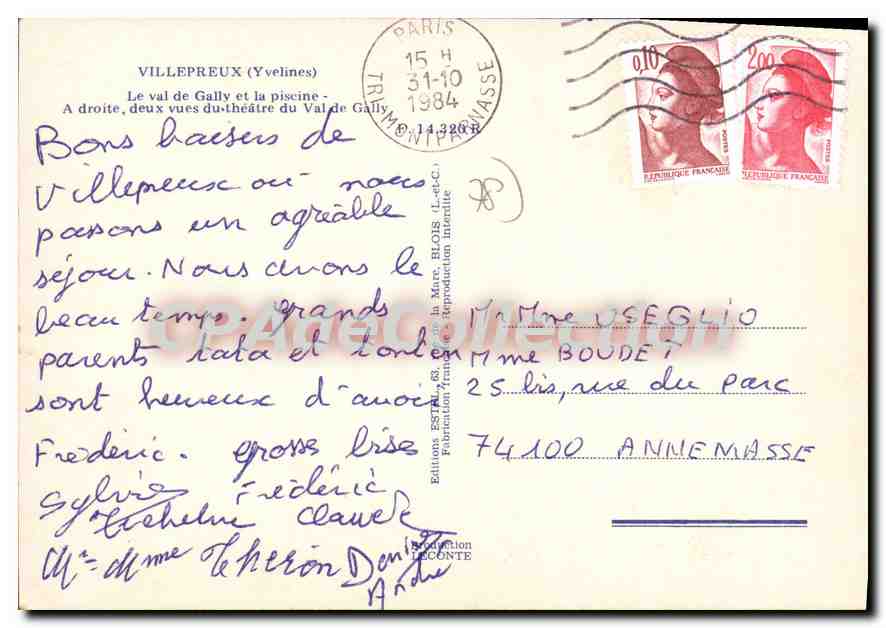 VILLEPREUX (Yvelines)
Le val de Gally et la piscine -
A droite, deux vues du théâtre du Val de Gally
P. 14.320 R
PARIS
15 H
31-10
1984
TRI MONTPARNASSE
0,10
POSTES
RÉPUBLIQUE FRANÇAISE
2,00
POSTES
RÉPUBLIQUE FRANÇAISE
78
Bons baisers de
Villepreux où nous
passons un agréable
séjour. Nous avons le
beau temps. grands
parents tata et tonton
sont heureux d'avoir
Frédéric. grosses bises
Sylvies Frédéric
Micheline Claude
Mr Mme Theron Denise
André
Editions ESTEL, 63, de la Mare, BLOIS (L.-et-C.)
Fabrication française - Reproduction interdite
CPAdeCollection
Mr Mme USEGLIO
Mme BOUDET
25 bis, rue du Parc
74100 ANNEMASSE
Production
LECONTE